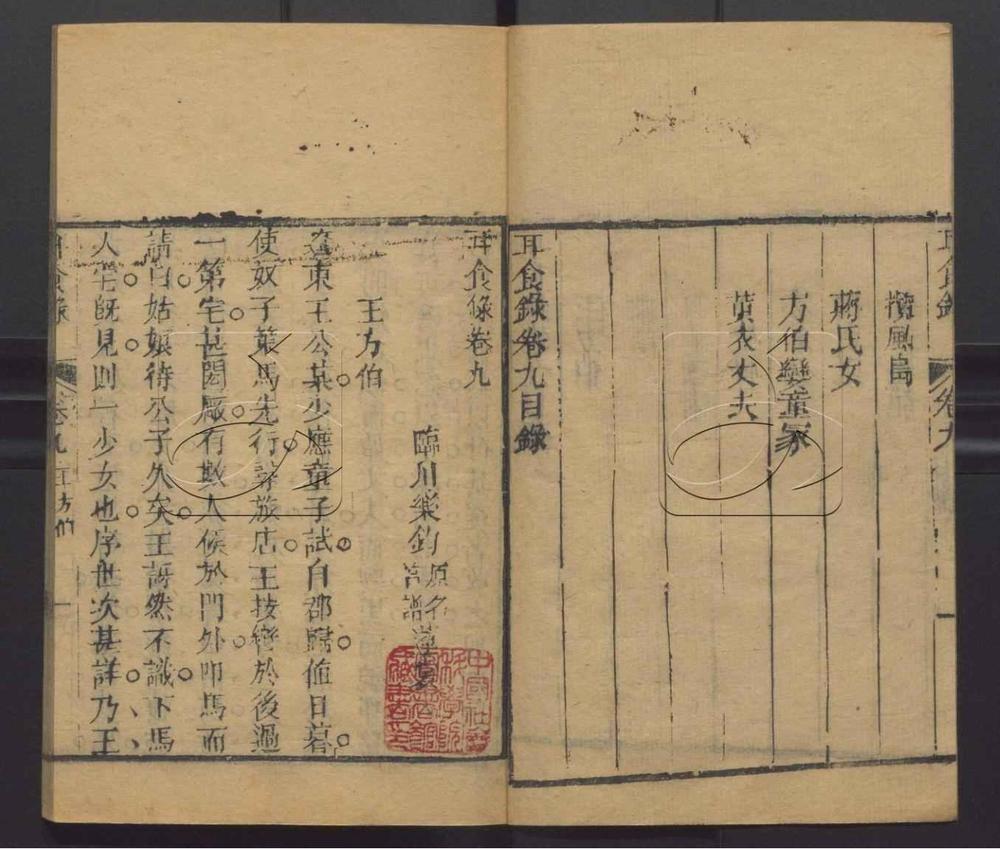 耳食錄
卷九
一
攪風島
蔣氏女
方伯孌童冢
黃衣丈夫
耳食錄卷九目錄
耳食錄卷九
臨川樂鈞 原名宮譜 蓮裳
王方伯
遼東王公某少應童子試自郡歸值日暮
使奴子策馬先行尋旅店王按轡於後過
一第宅甚閎厰有數人候於門外叩馬而
請曰姑孃待公子久矣王訝然不識下馬
入宅旣見則一少女也序世次甚詳乃王
耳食錄
卷九 王方伯
一